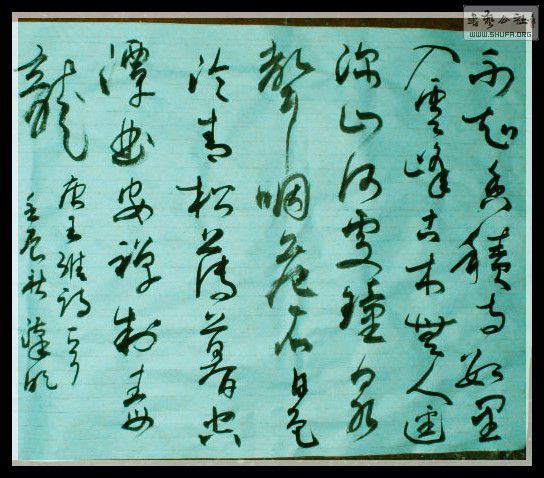 不知香積寺數里
入雲峰古木無人逕
深山何處鐘泉
聲咽危石日色
冷青松薄暮空
潭曲安禪制毒
龍
唐王維詩
壬辰秋
書藝公社
WWW.SHUFA.ORG